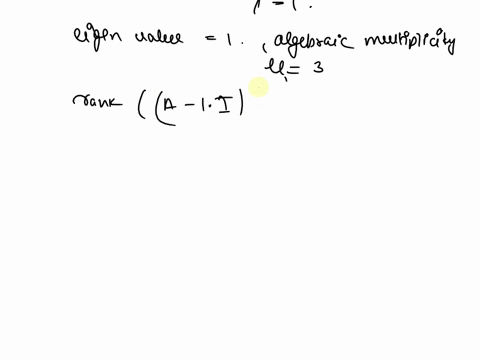 eigen value = 1. , algebraic multiplicity
= 3
rank ((A - 1. I)